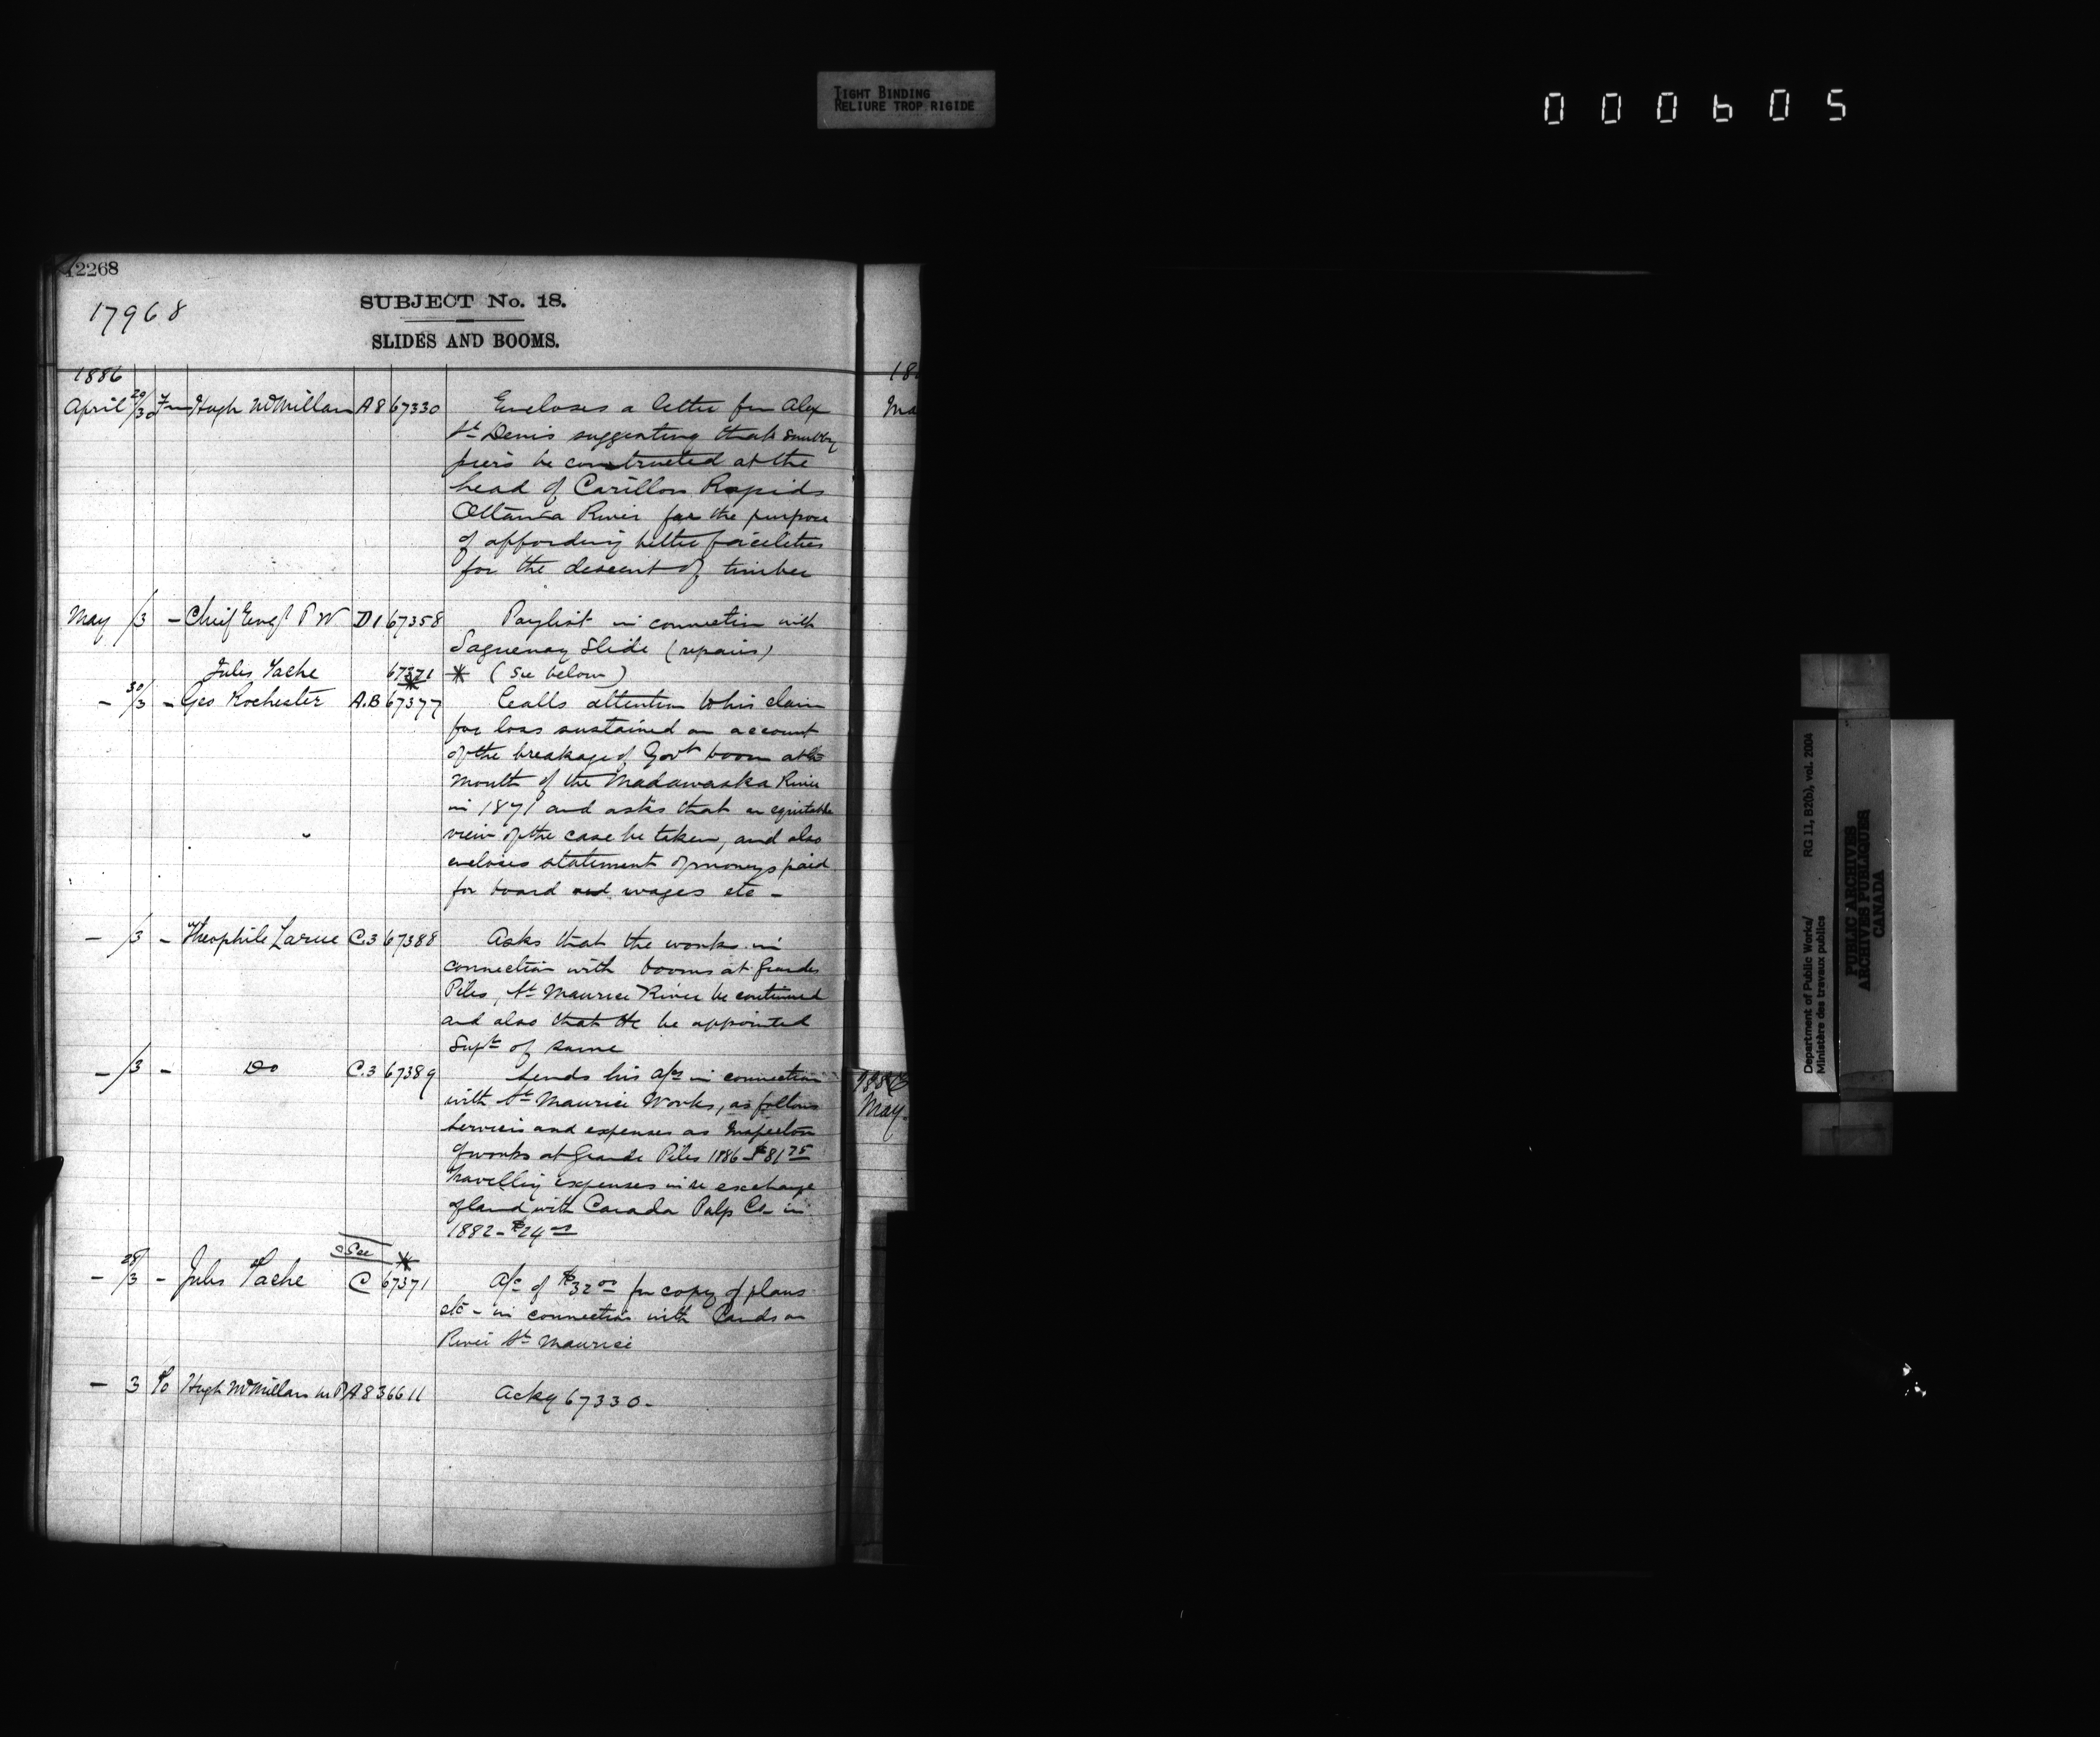 TIGHT BINDING
RELIURE TROP RIGIDE
000605
12268
17968
SUBJECT No. 18.
SLIDES AND BOOMS.
1886
April 29/30 Fm Hugh McMillan A8 67330 Encloses a letter fm Alex
St Denis suggesting that
piers be constructed at the
head of Carillon Rapids
Ottawa River for the purpose
of affording better facilities
for the descent of timber
May /3 - Chief Engr P W D1 67358 Paylist in connection with
Saguenay Slide (repairs)
Jules Tache 67371 * (See below)
*
- 30/3 - Geo Rochester A.B 67377 Calls attention to his claim
for loss sustained on account
of the breakage of Govt boom at the
mouth of the Madawaska River
in 1871 and asks that an equitable
view of the case be taken, and also
encloses statement of moneys paid
for board and wages etc -
- /3 - Theophile Larue C.3 67388 Asks that the works in
connection with booms at Grandes
Piles, St Maurice River be continued
and also that He be appointed
Supt of same
- /3 - Do C.3 67389 Sends his a/cs in connection
with St Maurice Works, as follows
Services and expenses as Inspector
of works at Grande Piles 1886 $81 75
Travelling expenses in re exchange
of land with Canada Pulp Co in
1882 - $24 00
See *
- 28/3 - Jules Tache C 67371 A/c of $32 00 for copy of plans
etc - in connection with Lands on
River St Maurice
- 3 To Hugh McMillan M P A8 36611 Ackg 67330 -
188
Ma
1886
May.
Department of Public Works/
Ministère des travaux publics
RG 11, B2(b), vol. 2004
PUBLIC ARCHIVES
ARCHIVES PUBLIQUES
CANADA